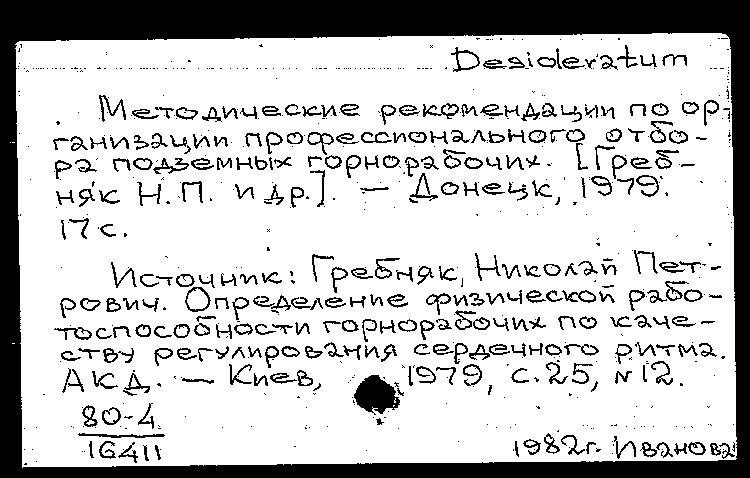 Desideratum
Методические рекомендации по ор-
ганизации профессионального отбо-
ра подземных горнорабочих. [Греб-
няк Н.П. и др.]. — Донецк, 1979.
17 с.
Источник: Гребняк, Николай Пет-
рович. Определение физической рабо-
тоспособности горнорабочих по каче-
ству регулирования сердечного ритма.
АКД. — Киев, 1979, с.25, №12.
80-4
16411
1982г. Иванова